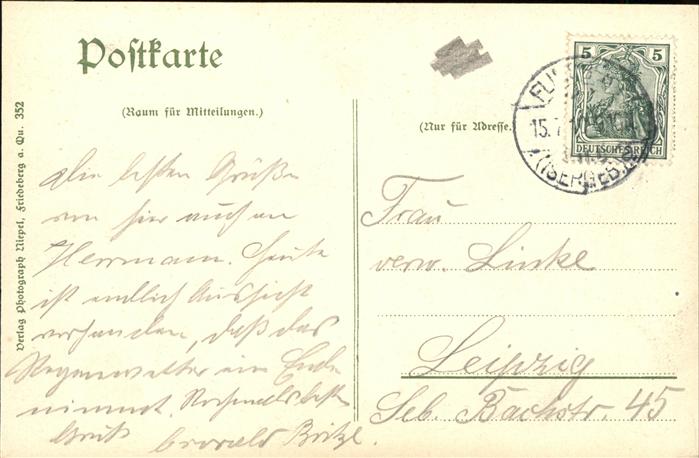 Postkarte
(Raum für Mitteilungen.)
(Nur für Adresse.)
5 5
DEUTSCHES REICH
15.7
(ISERGEB.)
Verlag Photograph Niepel, Friedeberg a. Qu. 352
Die besten Grüße
von hier auch an
Herrmann. Heute
ist endlich Aussicht
vorhanden, daß das
Regenwetter ein Ende
nimmt. Nochmals besten
Gruß
Frau
verw. Linke
Leipzig
Seb. Bachstr. 45